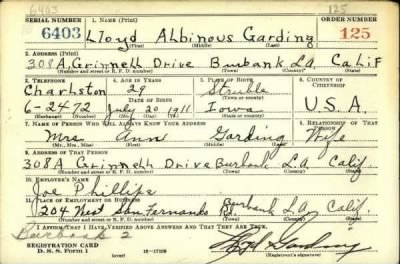 6403 125
SERIAL NUMBER 1. Name (Print) ORDER NUMBER
6403 Lloyd Albinous Garding 125
(First) (Middle) (Last)
2. Address (Print)
308A, Grinnell Drive Burbank L.A. Calif
(Number and street or R. F. D. number) (Town) (County) (State)
3. Telephone 4. Age in Years 5. Place of Birth 6. Country of Citizenship
Charlston 29 Struble
6-24-72 July 20 1911 Iowa U.S.A.
Date of Birth
(Exchange) (Number) (Mo.) (Day) (Yr.) (State or country)
7. Name of Person Who Will Always Know Your Address 8. Relationship of That Person
Mrs. Ann Garding Wife
(Mr., Mrs., Miss) (First) (Middle) (Last)
9. Address of That Person
308A Grinnell Drive Burbank L.A. Calif.
(Number and street or R. F. D. number) (Town) (County) (State)
10. Employer's Name
Joe Phillipe
11. Place of Employment or Business
204 West San Fernando Burbank L.A Calif.
(Number and street or R. F. D. number) (Town) (County) (State)
I Affirm That I Have Verified Above Answers and That They Are True.
Burbank 2
REGISTRATION CARD
D. S. S. Form 1 (over) (Registrant's signature)